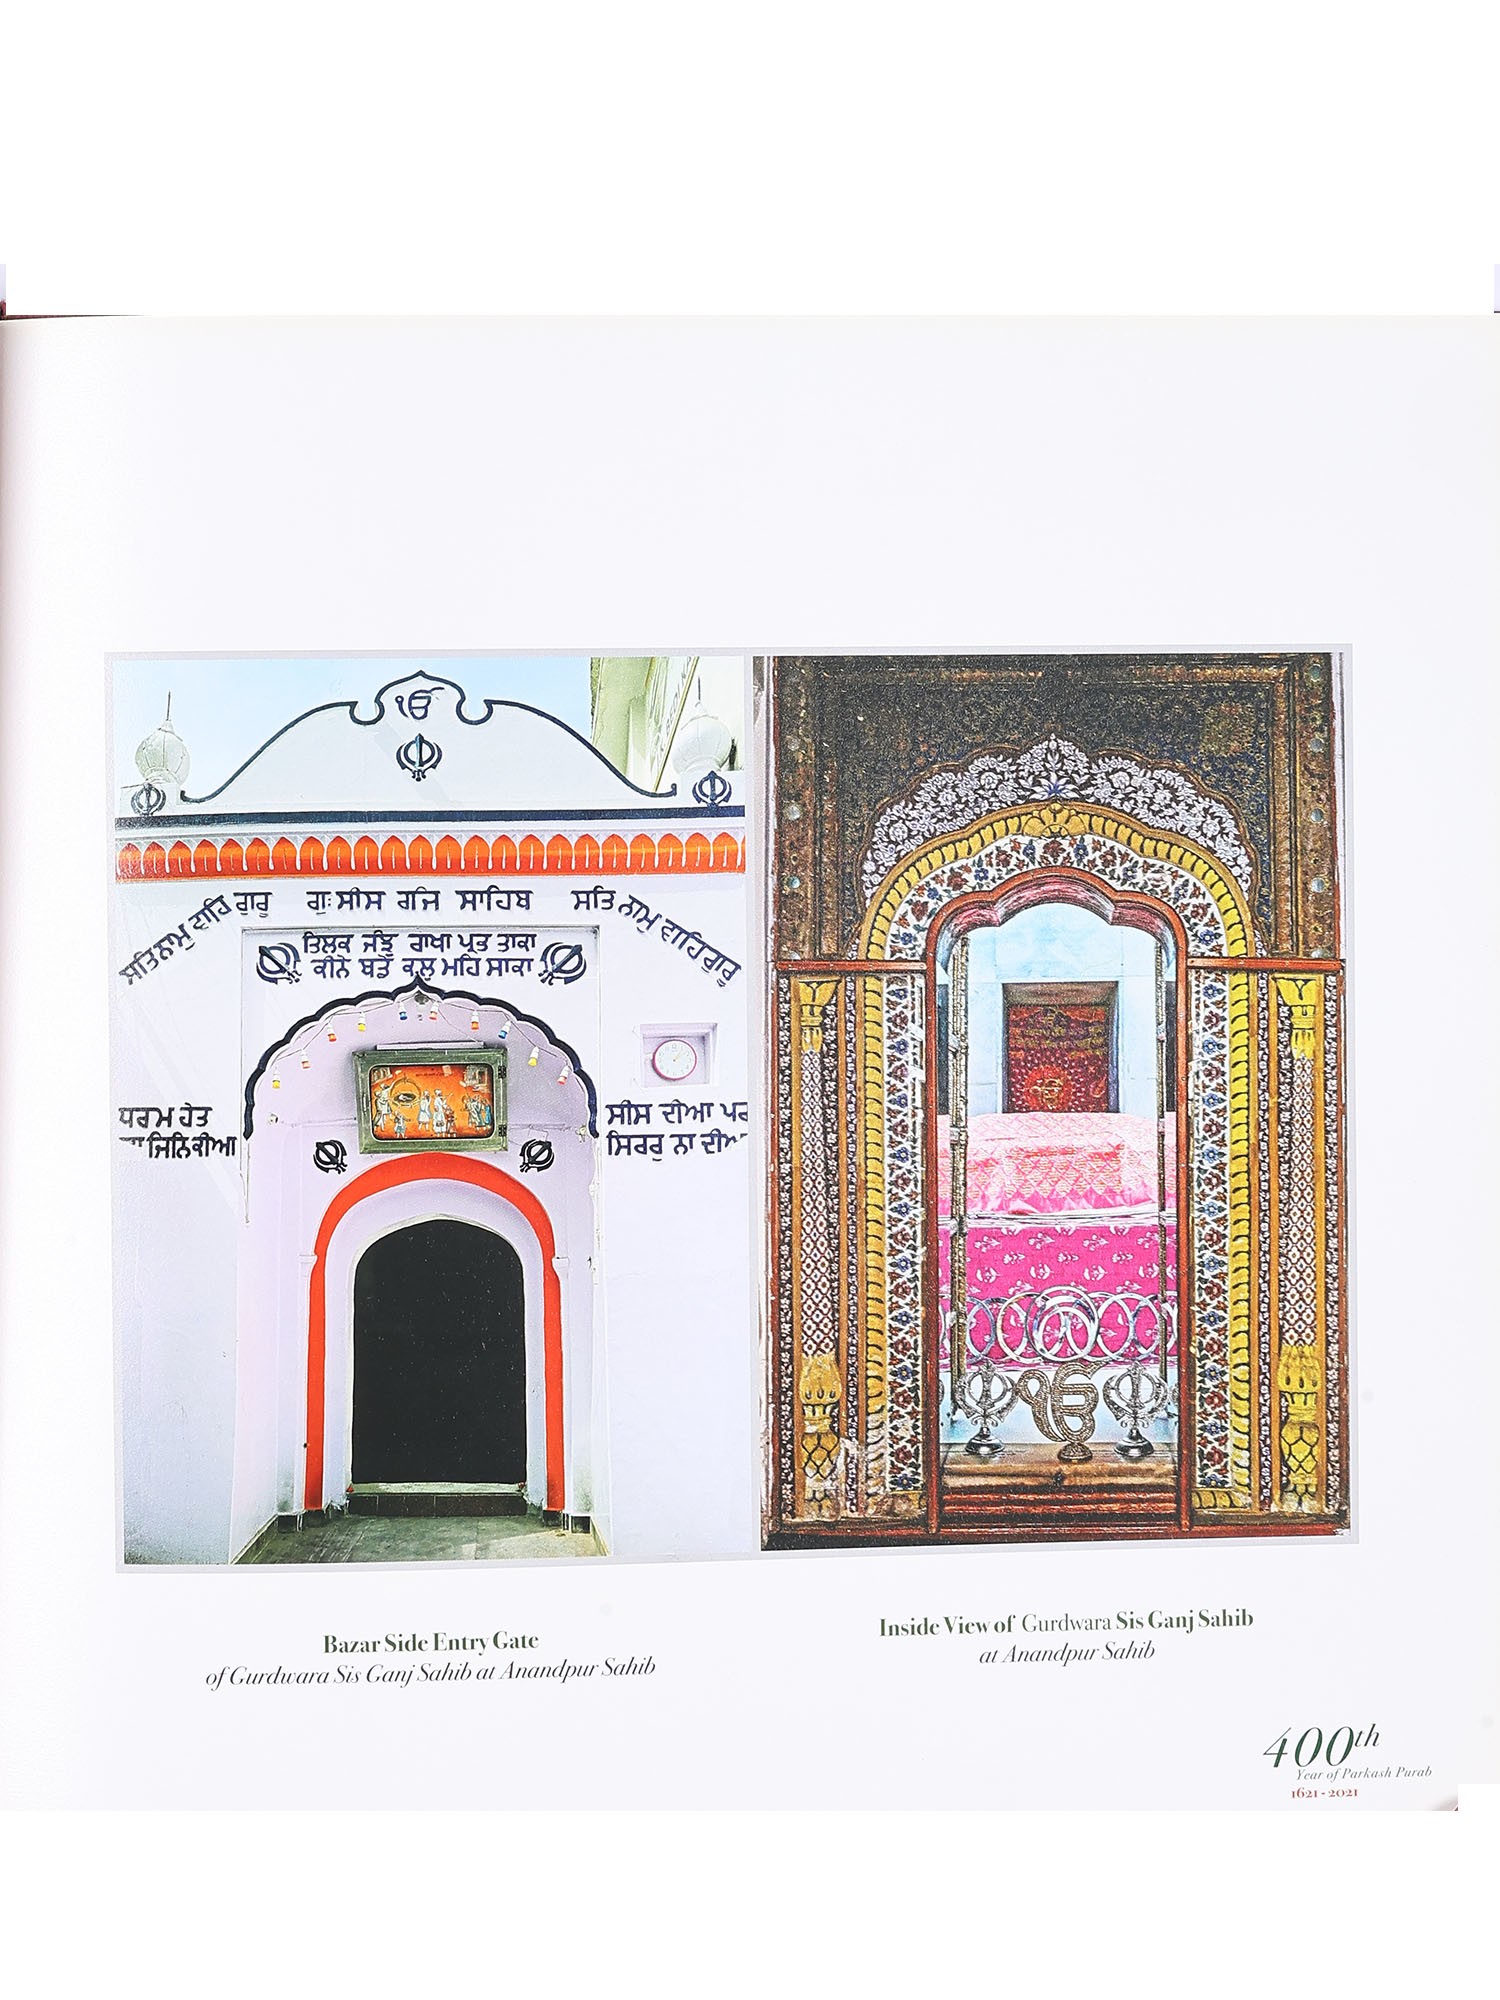 ੴ
ਸਤਿਨਾਮੁ ਵਾਹਿਗੁਰੂ ਗੁਃ ਸੀਸ ਗੰਜ ਸਾਹਿਬ ਸਤਿਨਾਮੁ ਵਾਹਿਗੁਰੂ
ਤਿਲਕ ਜੰਞੂ ਰਾਖਾ ਪ੍ਰਭ ਤਾਕਾ
ਕੀਨੋ ਬਡੋ ਕਲੂ ਮਹਿ ਸਾਕਾ
ਧਰਮ ਹੇਤ
ਜਿਨਿ ਕੀਆ
ਸੀਸ ਦੀਆ ਪਰ
ਸਿਰਰੁ ਨਾ ਦੀਆ
ੴ
Bazar Side Entry Gate
of Gurdwara Sis Ganj Sahib at Anandpur Sahib
Inside View of Gurdwara Sis Ganj Sahib
at Anandpur Sahib
400th
Year of Parkash Purab
1621 - 2021